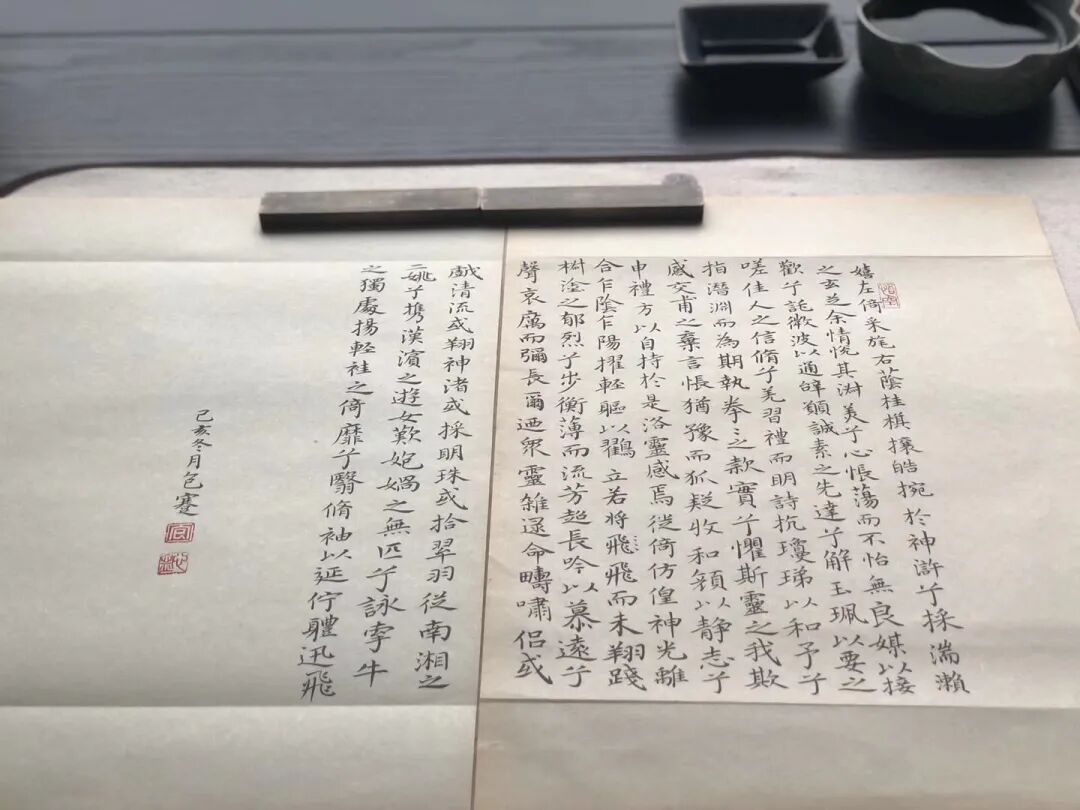 嬉左倚采旄右蔭桂棋攘皓捥於神滸兮採湍瀨
之玄芝余情悅其淑美兮心悵蕩而不怡無良媒以接
歡兮託微波以通辭願誠素之先達兮解玉珮以要之
嗟佳人之信脩兮羌習禮而明詩抗瓊珶以和予兮
指潛淵而為期執拳〻之款實兮懼斯靈之我欺
感交甫之棄言悵猶豫而狐疑收和顏以靜志兮
申禮方以自持於是洛靈感焉徙倚仿偟神光離
合乍陰乍陽擢輕軀以鶴立若將飛飛而未翔踐
椒塗之郁烈兮步衡薄而流芳超長吟以慕遠兮
聲哀厲而彌長爾迺眾靈雜遝命疇嘯侶或
戲清流或翔神渚或採明珠或拾翠羽從南湘之
二姚兮攜漢濱之遊女歎媧之無匹兮詠牽牛
之獨處揚輕袿之倚靡兮翳脩袖以延佇體迅飛
己亥冬月包蹇